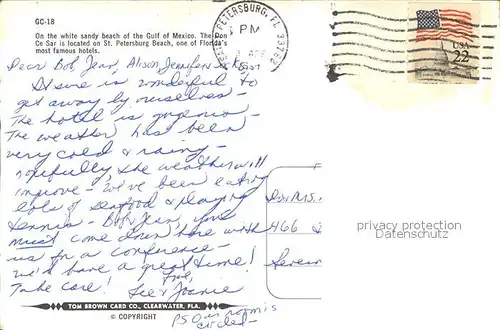 GC-18
On the white sandy beach of the Gulf of Mexico. The Don
Ce Sar is located on St. Petersburg Beach, one of Florida's
most famous hotels.
PETERSBURG, FL
PM
33782
USA
22
Dear Bob, Jean, Alison, Jennifer
It sure is wonderful to
get away by ourselves -
The hotel is gorgeous -
The weather has been
very cold & rainy -
hopefully the weather will
improve - We've been eating
lots of seafood & playing
tennis - Bob & Jean, you
must come down here with
us for a conference -
we'd have a great time!
Take care! Love,
Lee & Joanie
PS Our room is
circled -
466
privacy protection
Datenschutz
TOM BROWN CARD CO., CLEARWATER, FLA.
© COPYRIGHT